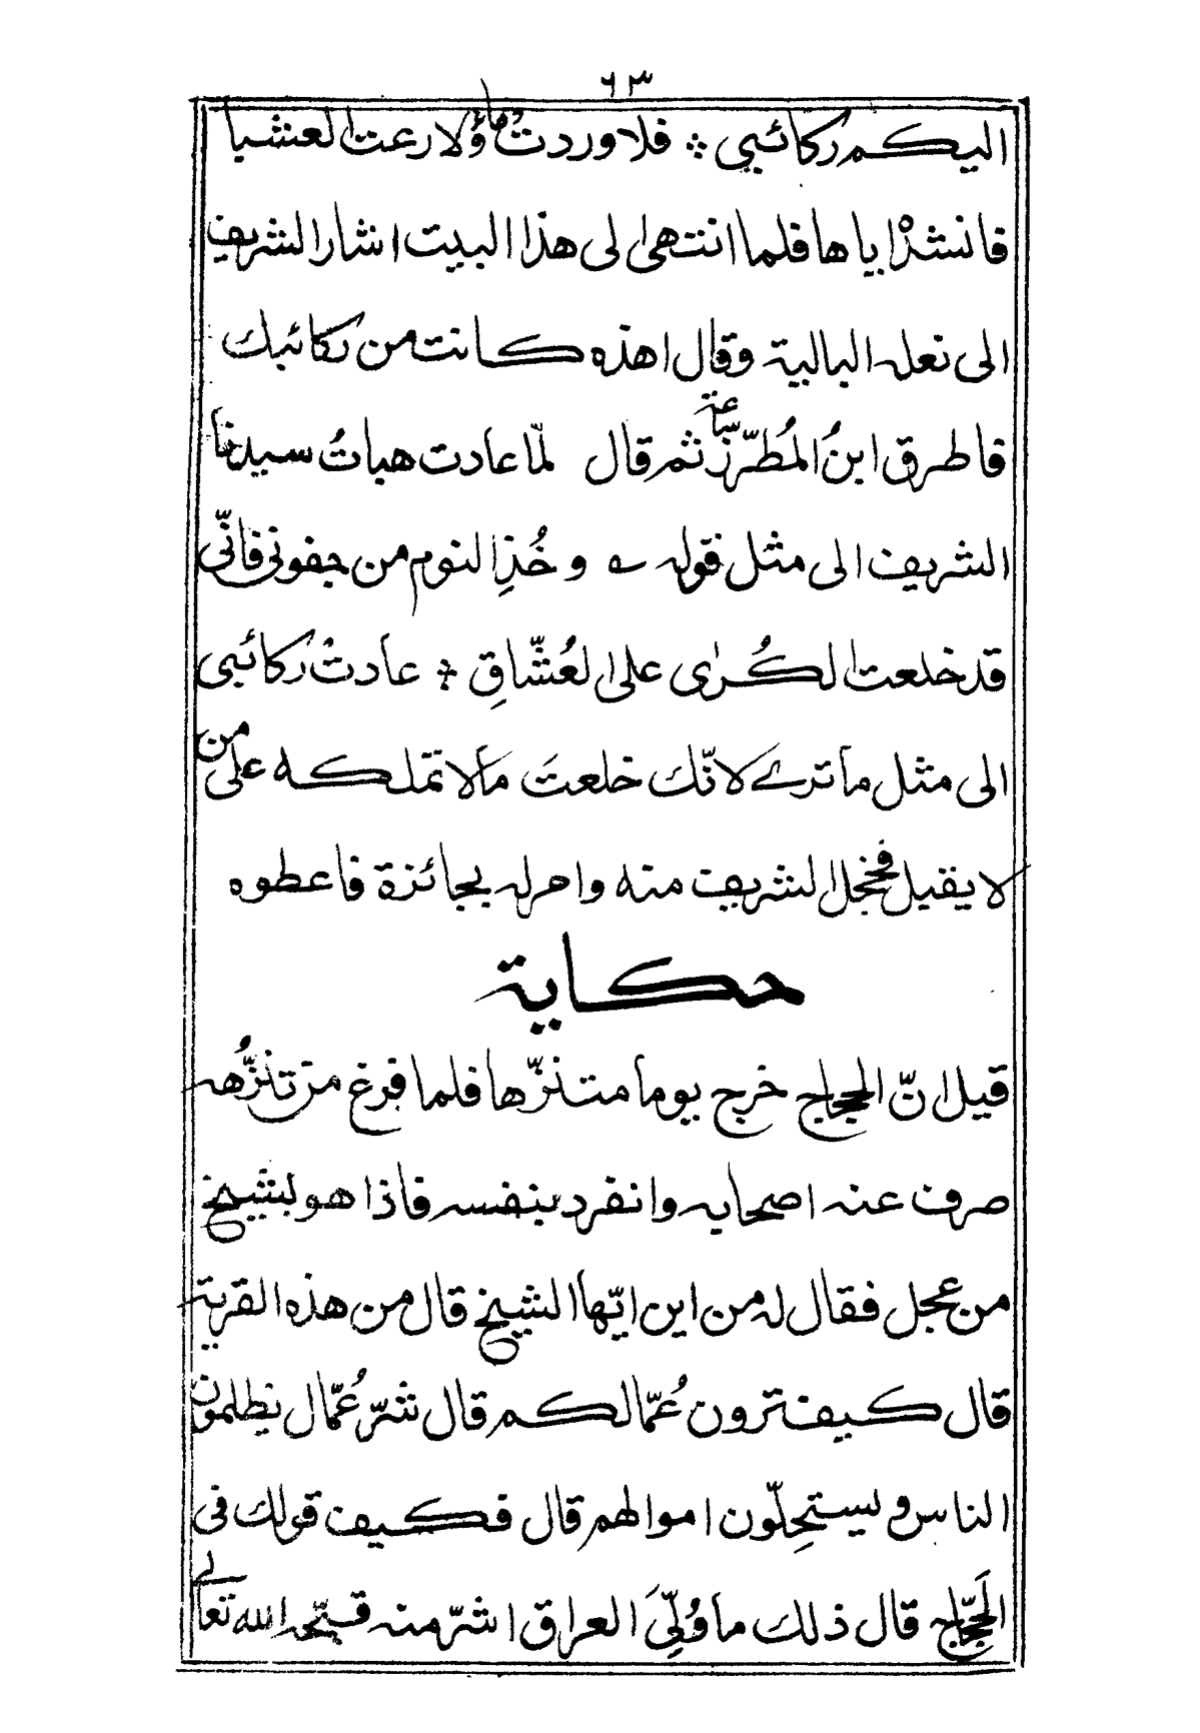 ٦٣
اليكم ركائبي ؞ فلا وردت ماؤلا رعت العشبا
فانشدْ اياها فلما انتهى الى هذا البيت اشار الشريف
الى نعله البالية وقال اهذه كانت من ركائبك
فاطرق ابنُ المُطرّز ساعة ثم قال لمّا عادت هباتُ سيدنا
الشريف الى مثل قوله ؎ وخُذِ النوم من جفوني فانّى
قد خلعت الكُرٰى على العُشّاقِ ؞ عادتْ ركائبي
الى مثل ما ترے لانّك خلعتَ مالا تملكه على من
لا يقبل فخجل الشريف منه وامر له بجائزة فاعطوه
حكاية
قيل انّ الحجاج خرج يوما متنزّها فلما فرغ من تنزُّهه
صرف عنه اصحابه وانفرد بنفسه فاذا هو بشيخ
من عجل فقال له من اين ايّها الشيخ قال من هذه القرية
قال كيف ترون عُمّالكم قال شرّ عُمّال يظلمون
الناس و يستحِلّون اموالهم قال فكيف قولك فى
الحَجّاج قال ذلك ما وُلِّىَ العراق اشرّ منه قبّحه الله تعالے